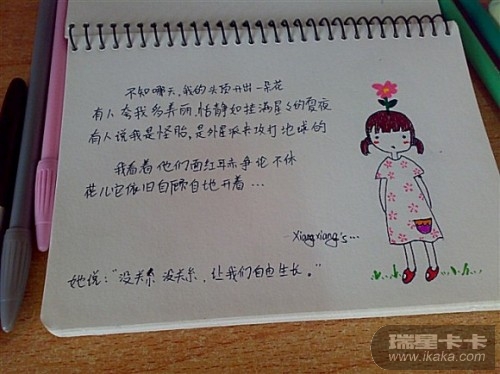 不知哪天，我的头顶开出一朵花
有人夸我多美丽，恬静如挂满星星的夏夜
有人说我是怪胎，是外星派来攻打地球的
我看着他们面红耳赤争论不休
花儿它依旧自顾自地开着…
Xiang xiang's…
她说：“没关系 没关系，让我们自由生长。”
瑞星卡卡
www.ikaka.com